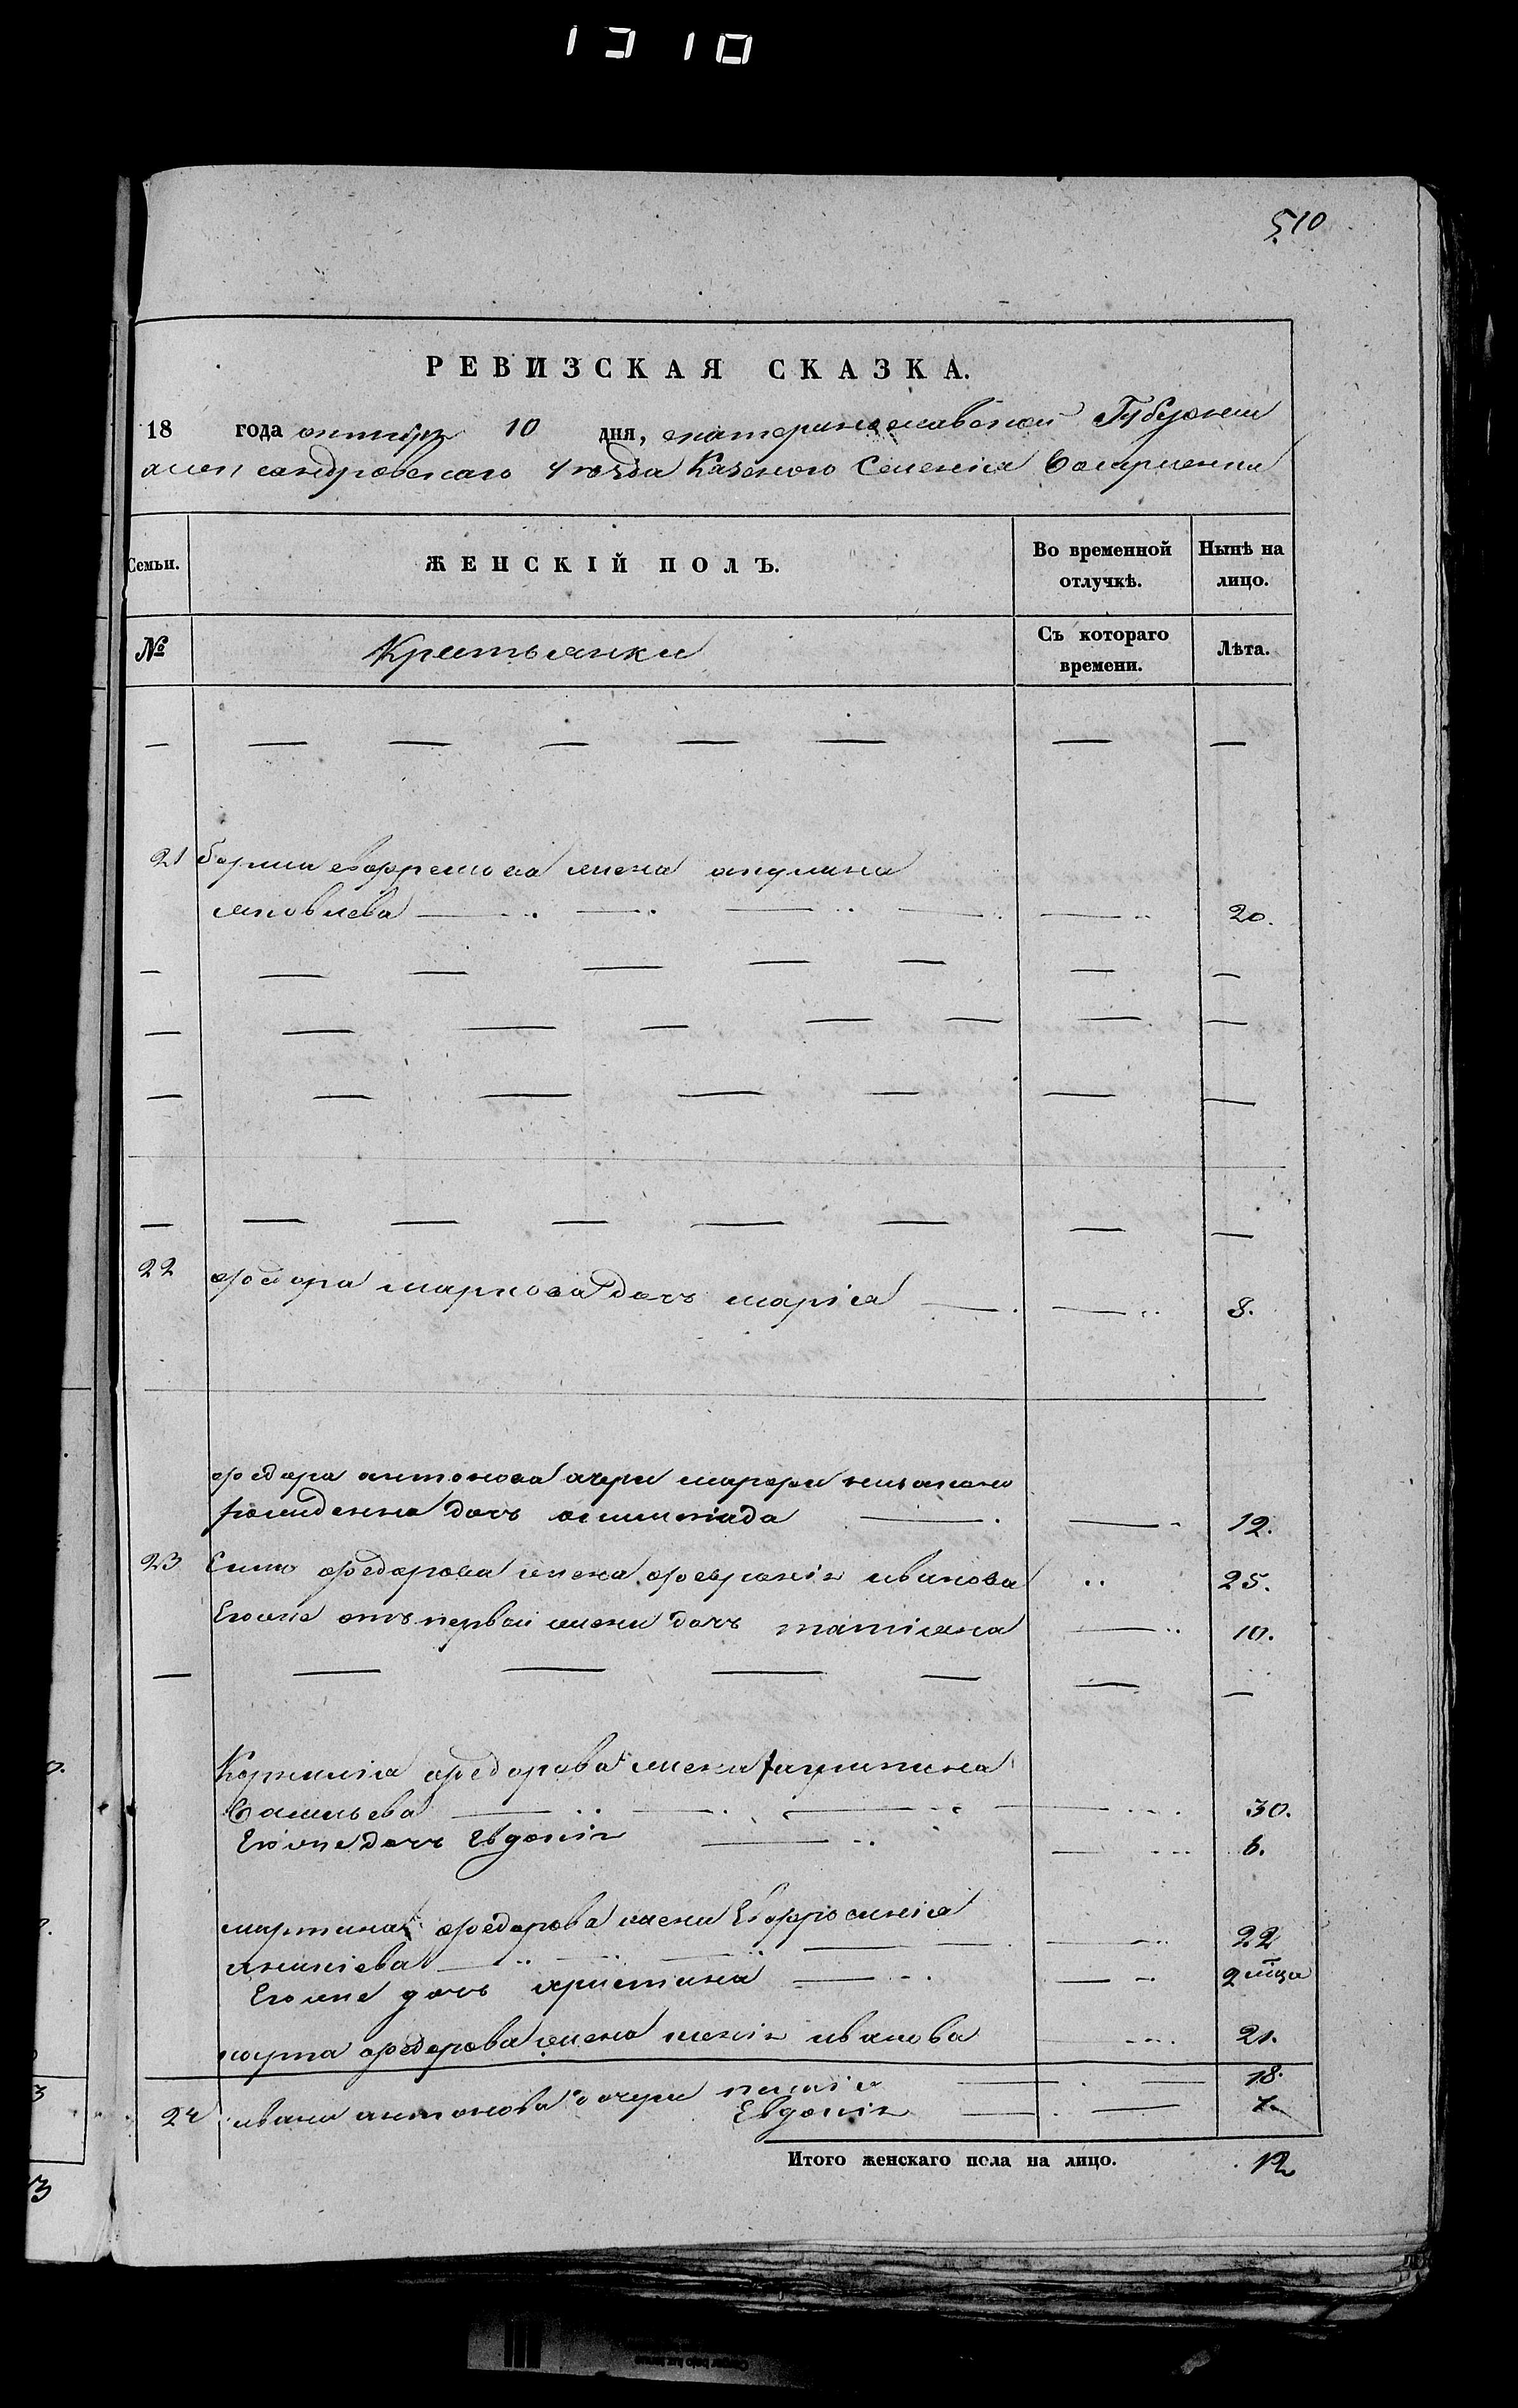 1310
510
РЕВИЗСКАЯ СКАЗКА.
18 года октября 10 дня, екатеринославской Губернии
александровскаго уезда Казеного Селенія
Семьи. ЖЕНСКІЙ ПОЛЪ. Во временной отлучкѣ. Нынѣ на лицо.
№ Крестьянки Съ котораго времени. Лѣта.
— — — — — — — —
21 евфремова жена акулина
яковлева — — — — — 20.
— — — — — — — —
— — — — — — — —
— — — — — — —
— — — — — — — —
22 федора маркова дочъ марія — — 8.
федора антонова
дочъ — — 12.
23 федорова жена иванова 25.
Его же отъ первой жены дочъ татіяна — 10.
— — — — — — —
Корнилія федорова жена агрипина
Васильева — — — — 30.
Его же дочъ Евдокія — — 6.
мартина федорова жена Евфросинія
— — — — — 22
Его же дочъ христина — — 2 мца
федорова жена иванова — 21.
24 ивана антонова дочери — — 18.
Евдокія — — 7.
Итого женскаго пола на лицо. 12